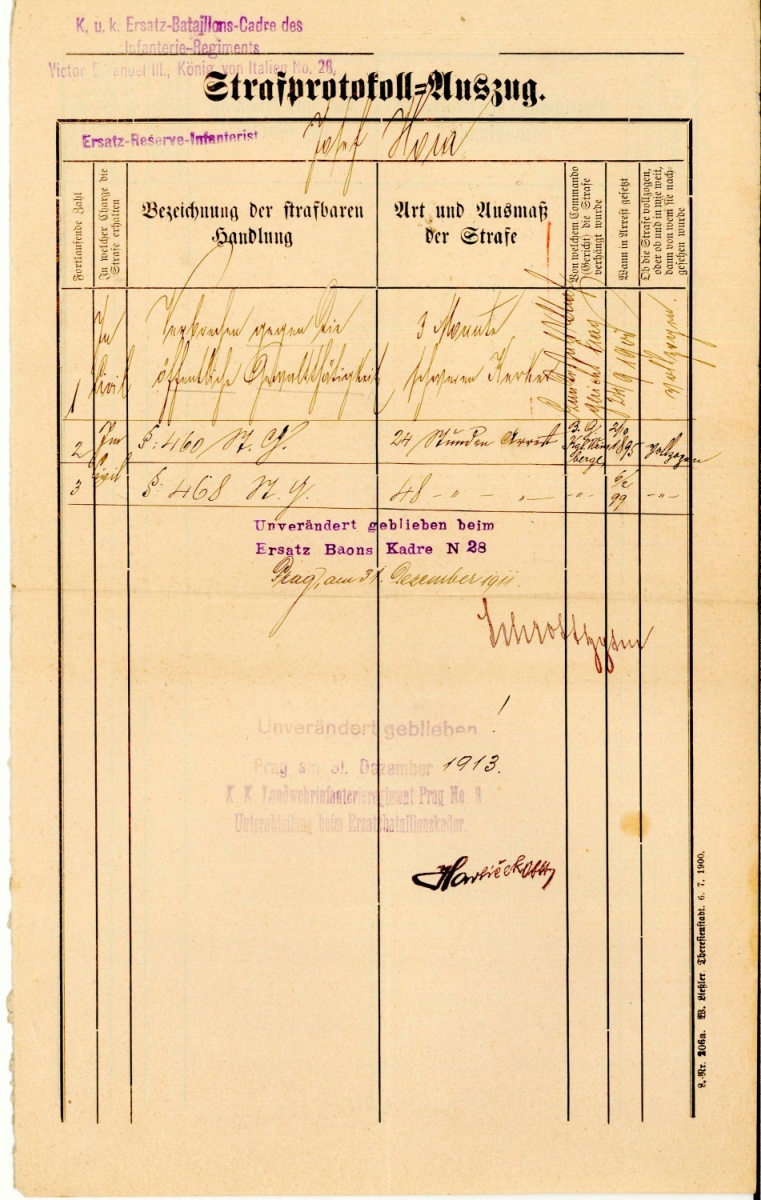 K. u. k. Ersatz-Bataillons-Cadre des
Infanterie-Regiments
Victor Emanuel III., König von Italien No. 28,
Strafprotokoll=Auszug.
Ersatz-Reserve-Infanterist
Josef
Fortlaufende Zahl
In welcher Charge die Strafe erhalten
Bezeichnung der strafbaren
Handlung
Art und Ausmaß
der Strafe
Von welchem Commando
(Gericht) die Strafe
verhängt wurde
Wann in Arrest gesetzt
Ob die Strafe vollzogen,
oder ob und in wie weit,
dann von wem sie nach-
gesehen wurde
1
In
Civil
Verbrechen gegen die
öffentliche Gewaltthätigkeit
3 Monate
schweren Kerker
vollzogen.
2
Im
Civil
§: 460 St. G.
24 Stunden Arrest
B. G.
Kgl. Wein
berge
2/10
1895
vollzogen
3
§: 468 St. G.
48 - „ - „ -
- „ -
6/2
99
- „ -
Unverändert geblieben beim
Ersatz Baons Kadre N 28
Prag, am 31. Dezember 1911.
Unverändert geblieben
Prag am 31. Dezember 1913.
K. K. Landwehrinfanterieregiment Prag No. 8
Unterabteilung beim Ersatzbataillonskader.
L.-Nr. 206a. W. Ließler. Theresienstadt. 6. 7. 1900.